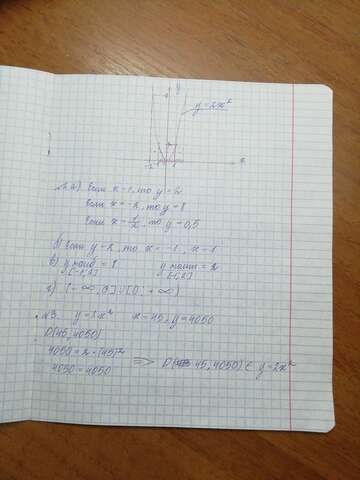 y
y = 2x²
x
а) Если x=1, то y=2
если x=-2, то y=8
Если x=1/2, то y=0,5
б) если y=2, то x=-1, x=1
в) y наиб = 8 y наим = 2
[-1;2]
г) (-∞;0]∪[0;+∞)
№3. y=2x² x=45, y=4050
D(45;4050)
4050=2·(45)² => D(45,4050) ∈ y=2x²
4050=4050